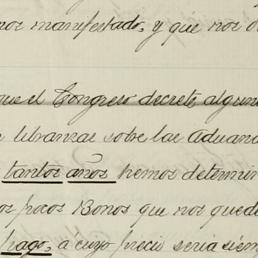 nos manifestado, y que nos
que el Congreso decrete algun
libranzas sobre las Aduana
tantos años hemos determin
os pocos Bonos que nos qued
pago, a cuyo precio seria siem